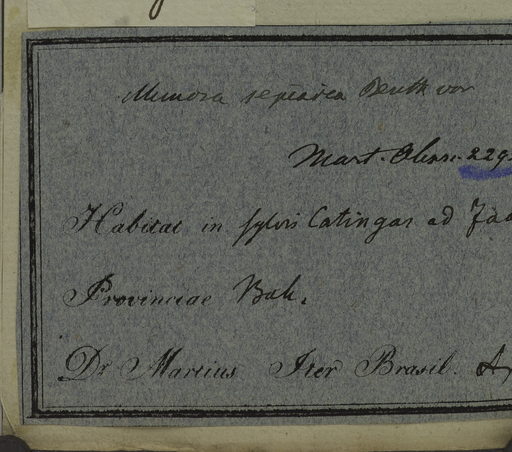 Mimosa sepiaria Benth var
Mart. Obsn. 229
Habitat in sylvis Catingas ad
Provinciae Bah.
Dr Martius Iter Brasil.